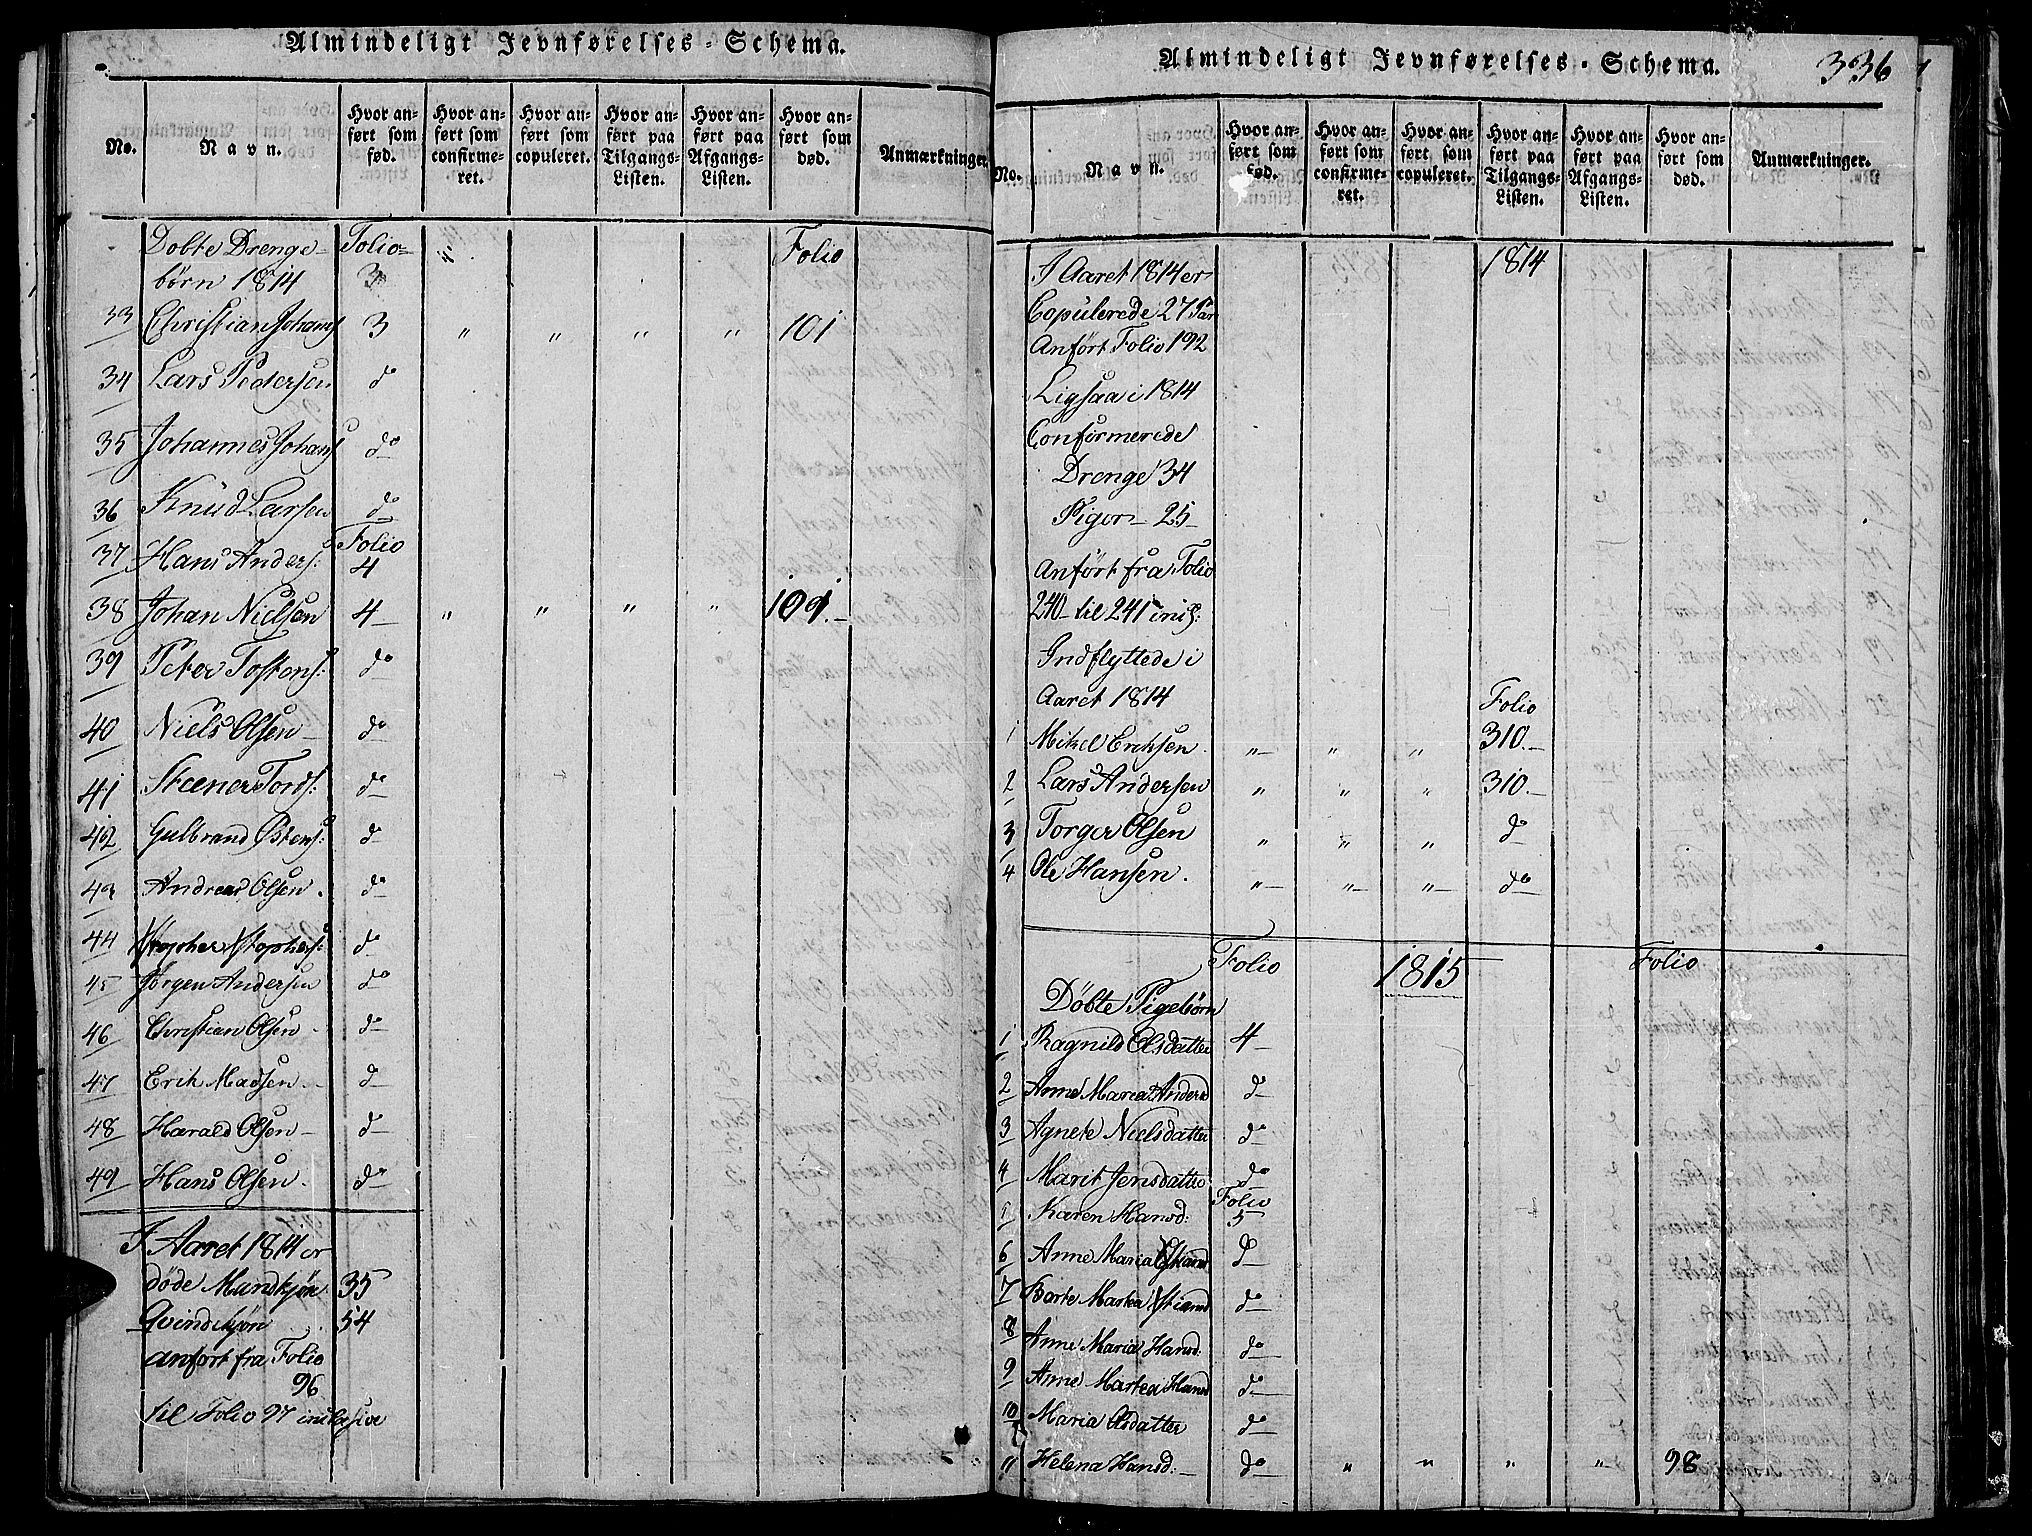 Almindeligt Jevnførelses-Schema.
No.
Navn.
Hvor anført som fød.
Hvor anført som confirmeret.
Hvor anført som copuleret.
Hvor anført paa Tilgangs-Listen.
Hvor anført paa Afgangs-Listen.
Hvor anført som død.
Anmærkninger.
Døbte Drenge- Folio- " Folio
børn 1814 3
33 Christian Johans 3 " " " " 101
34 Lars Pedersen do
35 Johannes Johans do
36 Knud Larsen do
Folio
37 Hans Anders: 4
38 Johan Nielsen 4 " " " " 101.-
39 Peter Tostens: do
40 Niels Olsen do
41 Steener Tords: do
42 Gulbrand Østens: do
43 Andreas Olsen. do
44 Stopher Stophers: do
45 Jørgen Andersen do
46 Christian Olsen do
47 Erik Madsen do
48 Harald Olsen do
49 Hans Olsen. do
I Aaret 1814 er
døde Mandkjøn 35
Qvindekjøn 54
anført fra Folio
96
til Folio 97 inclusive
Almindeligt Jevnførelses-Schema.
336
No.
Navn.
Hvor anført som fød.
Hvor anført som confirmeret.
Hvor anført som copuleret.
Hvor anført paa Tilgangs-Listen.
Hvor anført paa Afgangs-Listen.
Hvor anført som død.
Anmærkninger.
I Aaret 1814 er 1814
Copulerede 27 Par
Anført Folio 192
Ligsaa i 1814
Confirmerede
Drenge 34
Piger 25
Anført fra Folio
240 til 241 incl:
Indflyttede i
Aaret 1814 Folio
1 Mikel Eriksen " " " 310.-
2 Lars Andersen " " " 310.-
3 Torger Olsen " " " do
4 Ole Hansen. " " " do
Folio 1815 Folio
Døbte Pigebørn
1 Ragnild Olsdatter 4
2 Anne Maria Andersd do
3 Agnete Nielsdatter do
4 Marit Jensdatter do
Folio
5 Karen Hansd: 5
6 Anne Maria do
7 Barte Martea do
8 Anne Maria Hansd: do
9 Anne Martea Hansd do
10 Maria Olsdatter do
11 Helena Hansd: do " " " " 98